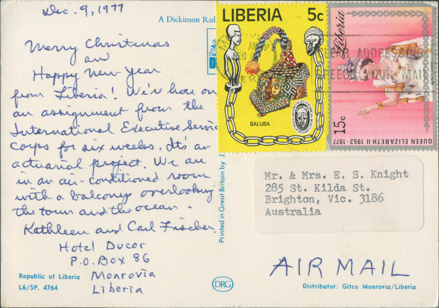 Dec. 9, 1977
Merry Christmas
and
Happy New Year
from Liberia! We're here on
an assignment from the
International Executive Service
Corps for six weeks. It's an
actuarial project. We are
in an air-conditioned room
with a balcony overlooking
the town and the ocean.
Kathleen and Carl Fischer
Hotel Ducor
P.O. Box 86
Monrovia
Liberia
Republic of Liberia
L6/SP. 4764
A Dickinson Rob
Printed in Great Britain by J.
DRG
LIBERIA 5c
BALUBA
Liberia
15c
QUEEN ELIZABETH II 1952-1977
CLEAR ADDRESSING
SPEEDS YOUR MAIL
Mr. & Mrs. E. S. Knight
285 St. Kilda St.
Brighton, Vic. 3186
Australia
AIR MAIL
Distributor: Gitco Monrovia/Liberia